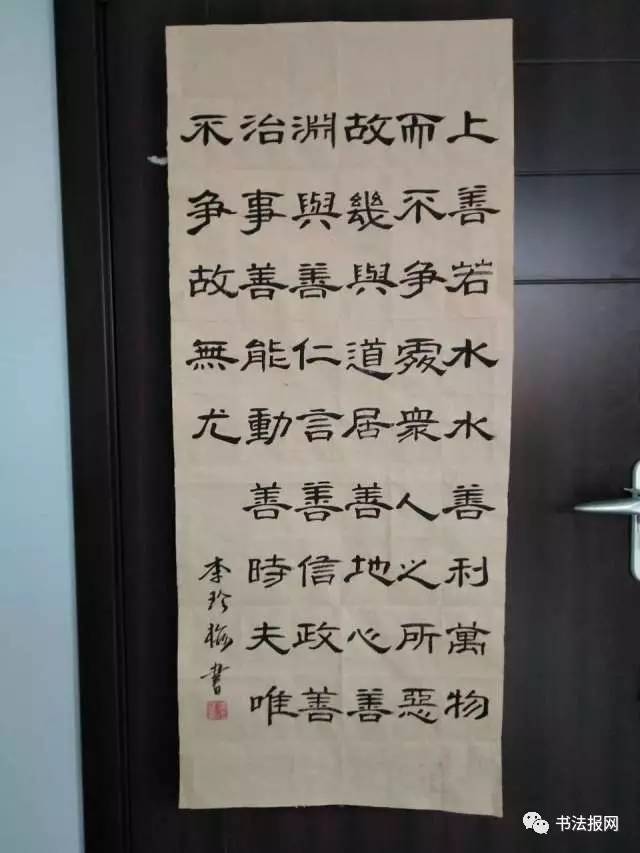 上善若水水善利萬物
而不争處衆人之所惡
故幾與道居善地心善
淵與善仁言善信政善
治事善能動善時夫唯
不争故無尤
李珍梅書
书法报网